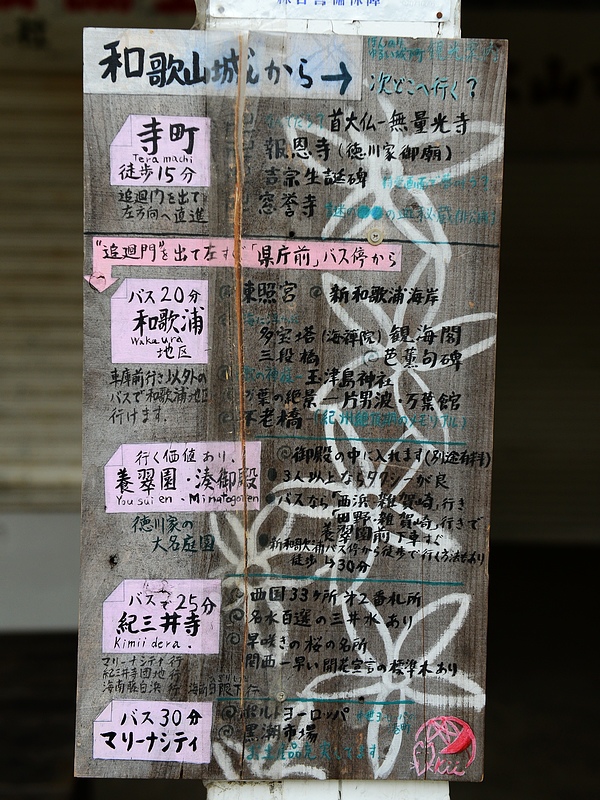 和歌山城から→
次どこへ行く？
寺町
Teramachi
徒歩15分
追廻門を出て
左方向へ直進
首大仏－無量光寺
報恩寺（徳川家御廟）
吉宗生誕碑
窓誉寺
"追廻門"を出て左
「県庁前」バス停から
バス20分
和歌浦
Wakaura
地区
車庫前行き以外の
バスで和歌浦地区
行けます。
東照宮 新和歌浦海岸
多宝塔（海禅院）観海閣
三段橋 芭蕉句碑
玉津島神社
万葉の絶景－片男波・万葉館
不老橋
行く価値あり。
養翠園・湊御殿
Yousuien・Minatogoten
徳川家の
大名庭園
御殿の中に入れます（別途有料）
3人以上ならタクシーが良
バスなら「西浜、雑賀崎」行き
「田野・雑賀崎」行きで
養翠園前下車
新和歌浦バス停から徒歩で行く方法もあり
徒歩 30分
バスで25分
紀三井寺
Kimiidera.
マリーナシティ行
紀三井寺団地行
海南藤白浜行
西国33ヶ所 2番札所
名水百選の三井水あり
早咲きの桜の名所
関西一早い開花宣言の標準木あり
バス30分
マリーナシティ
ポルトヨーロッパ
黒潮市場